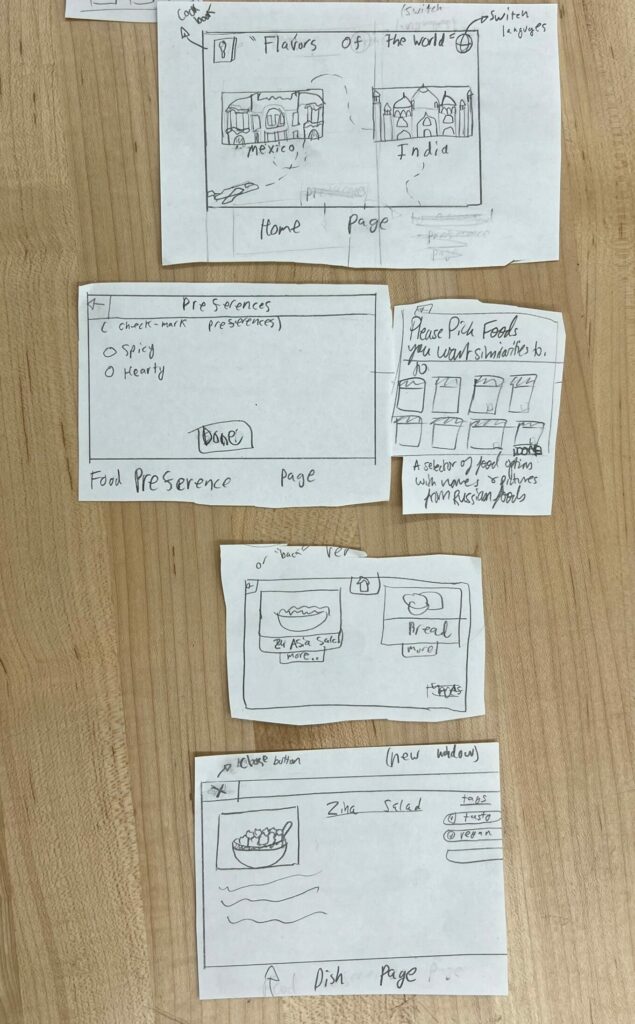 Cook book
(switch
switch languages
"Flavors of the world"
Mexico
India
Home Page
Preferences
( check-mark preferences)
Spicy
Hearty
Done
Food Preference Page
Please Pick Foods
you want similarities to.
A selector of food option
with names & pictures
from Russian foods
or "back" ver
Bread
more..
more
close button
(new window)
X
Salad
tags
vegan
Dish Page